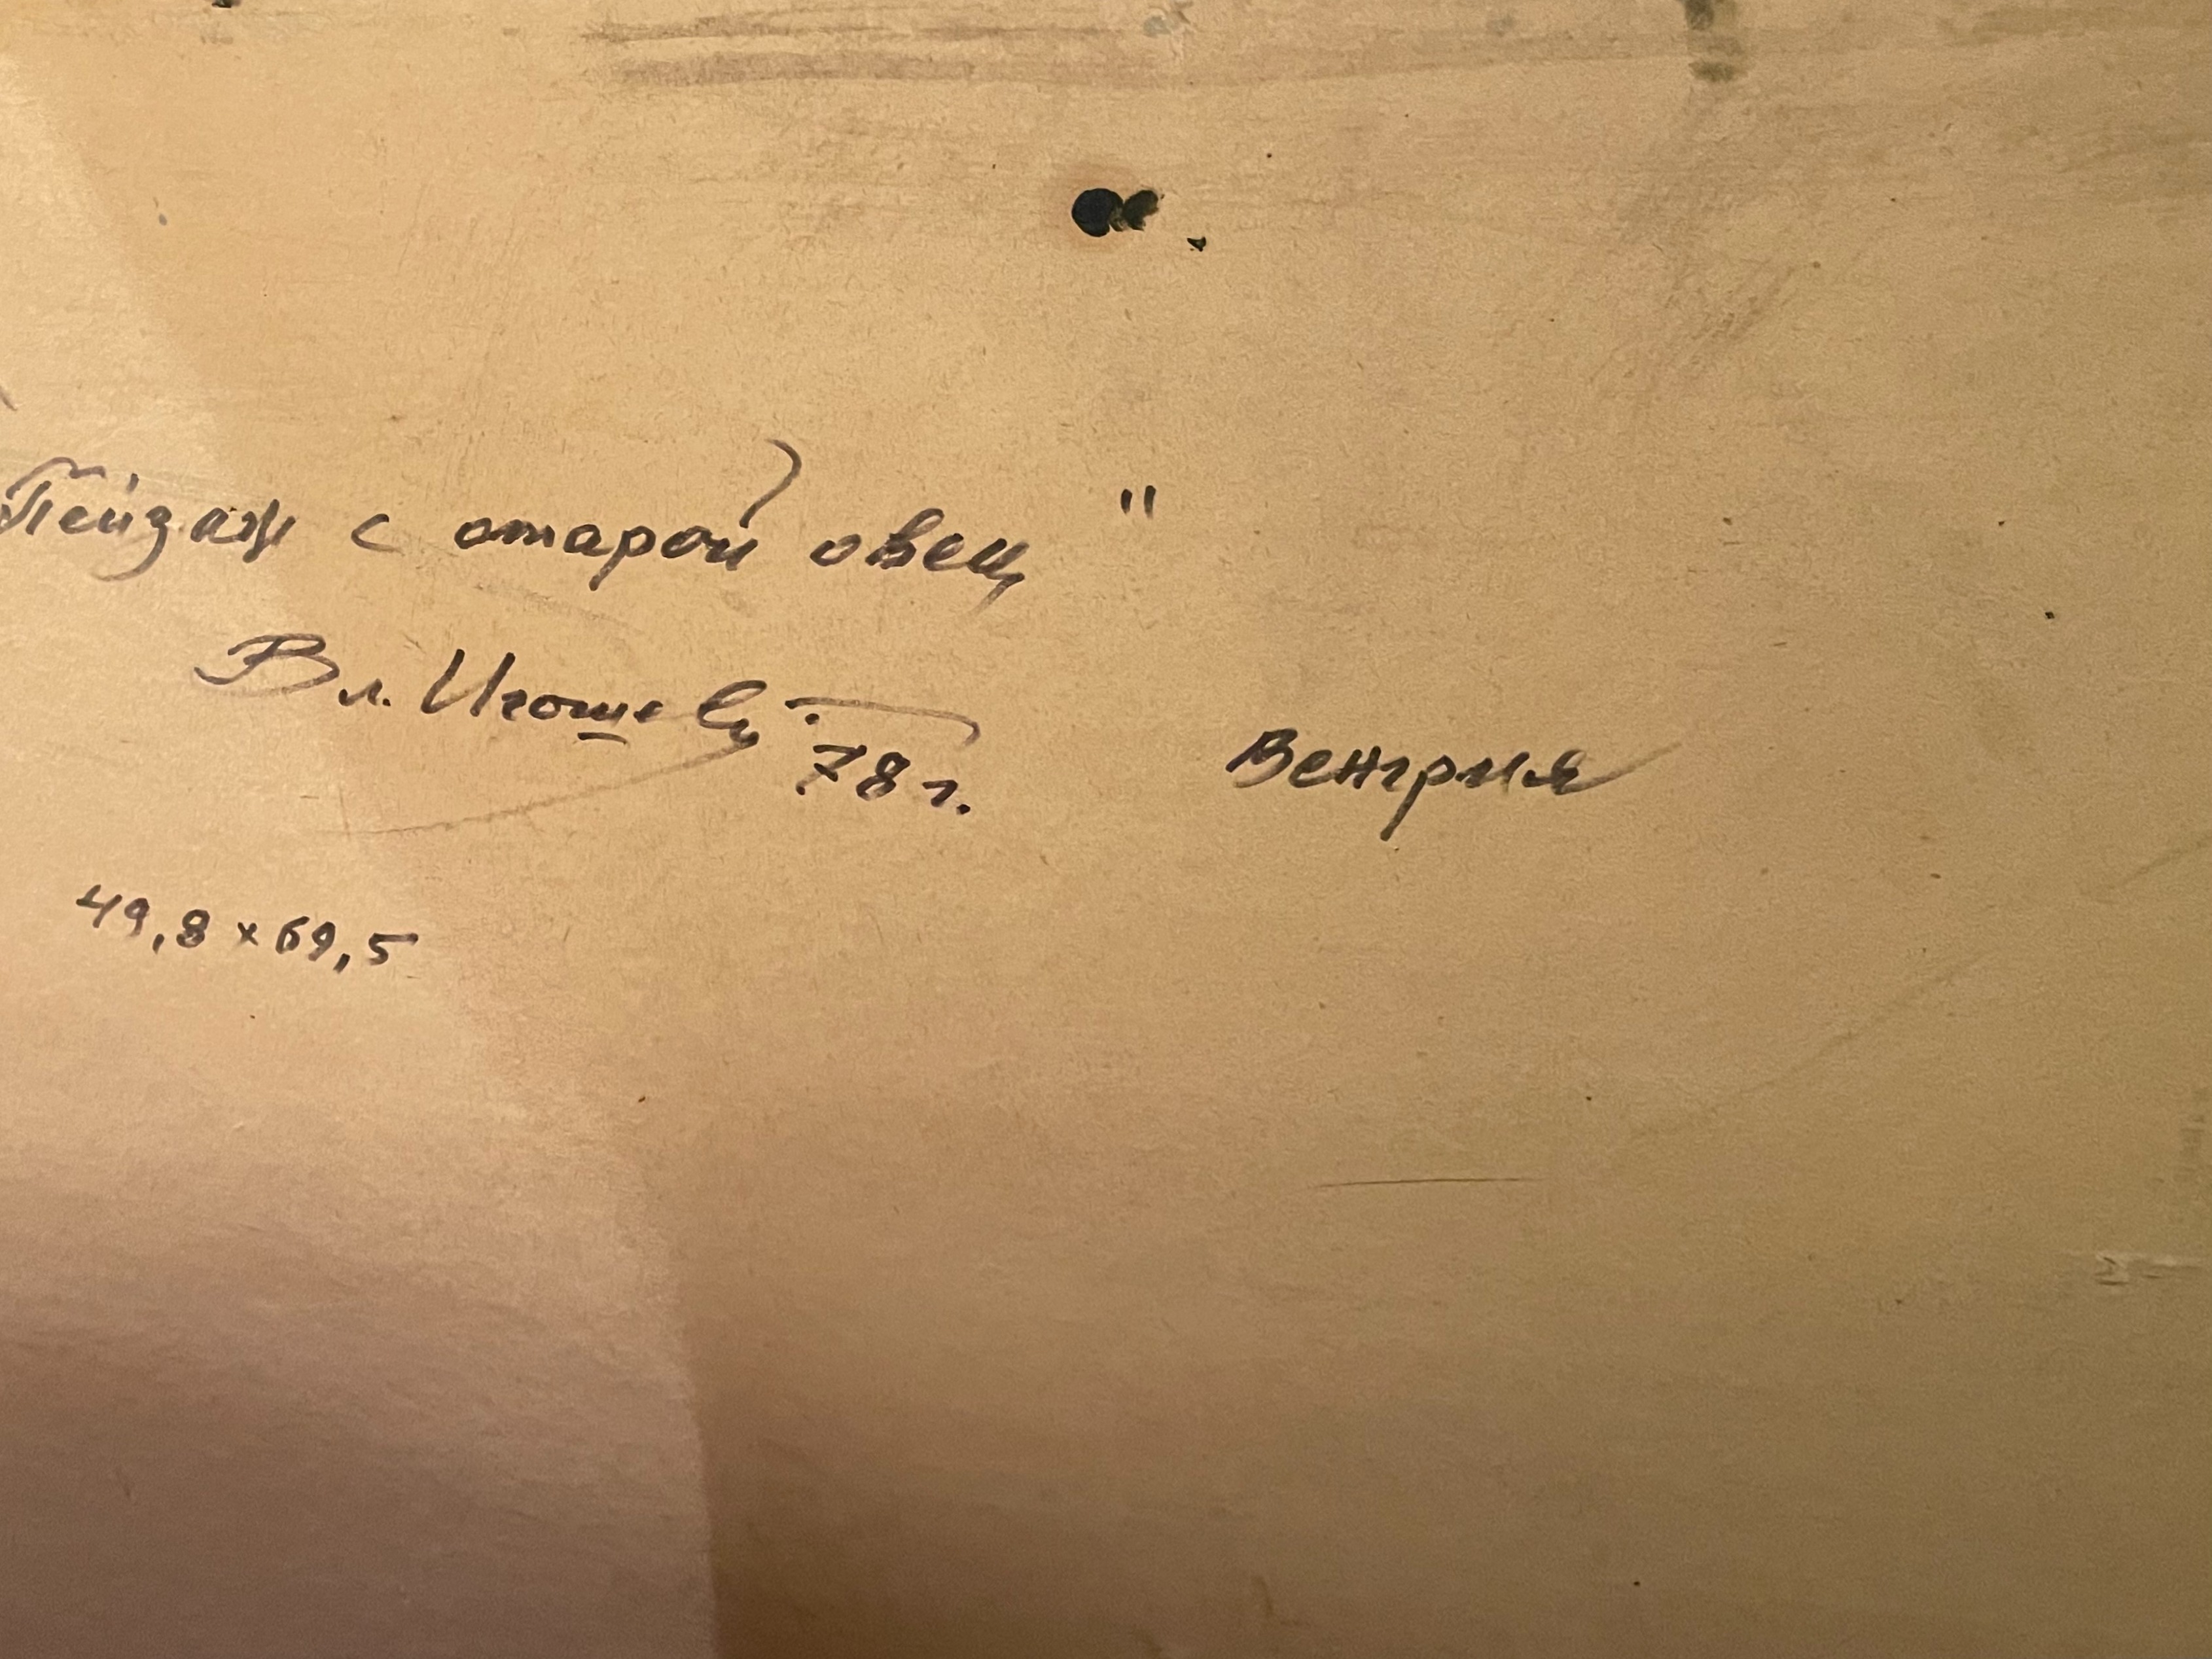 Пейзаж с отарой овец"
Вл. Игошев
78 г. Венгрия
49,8 × 69,5